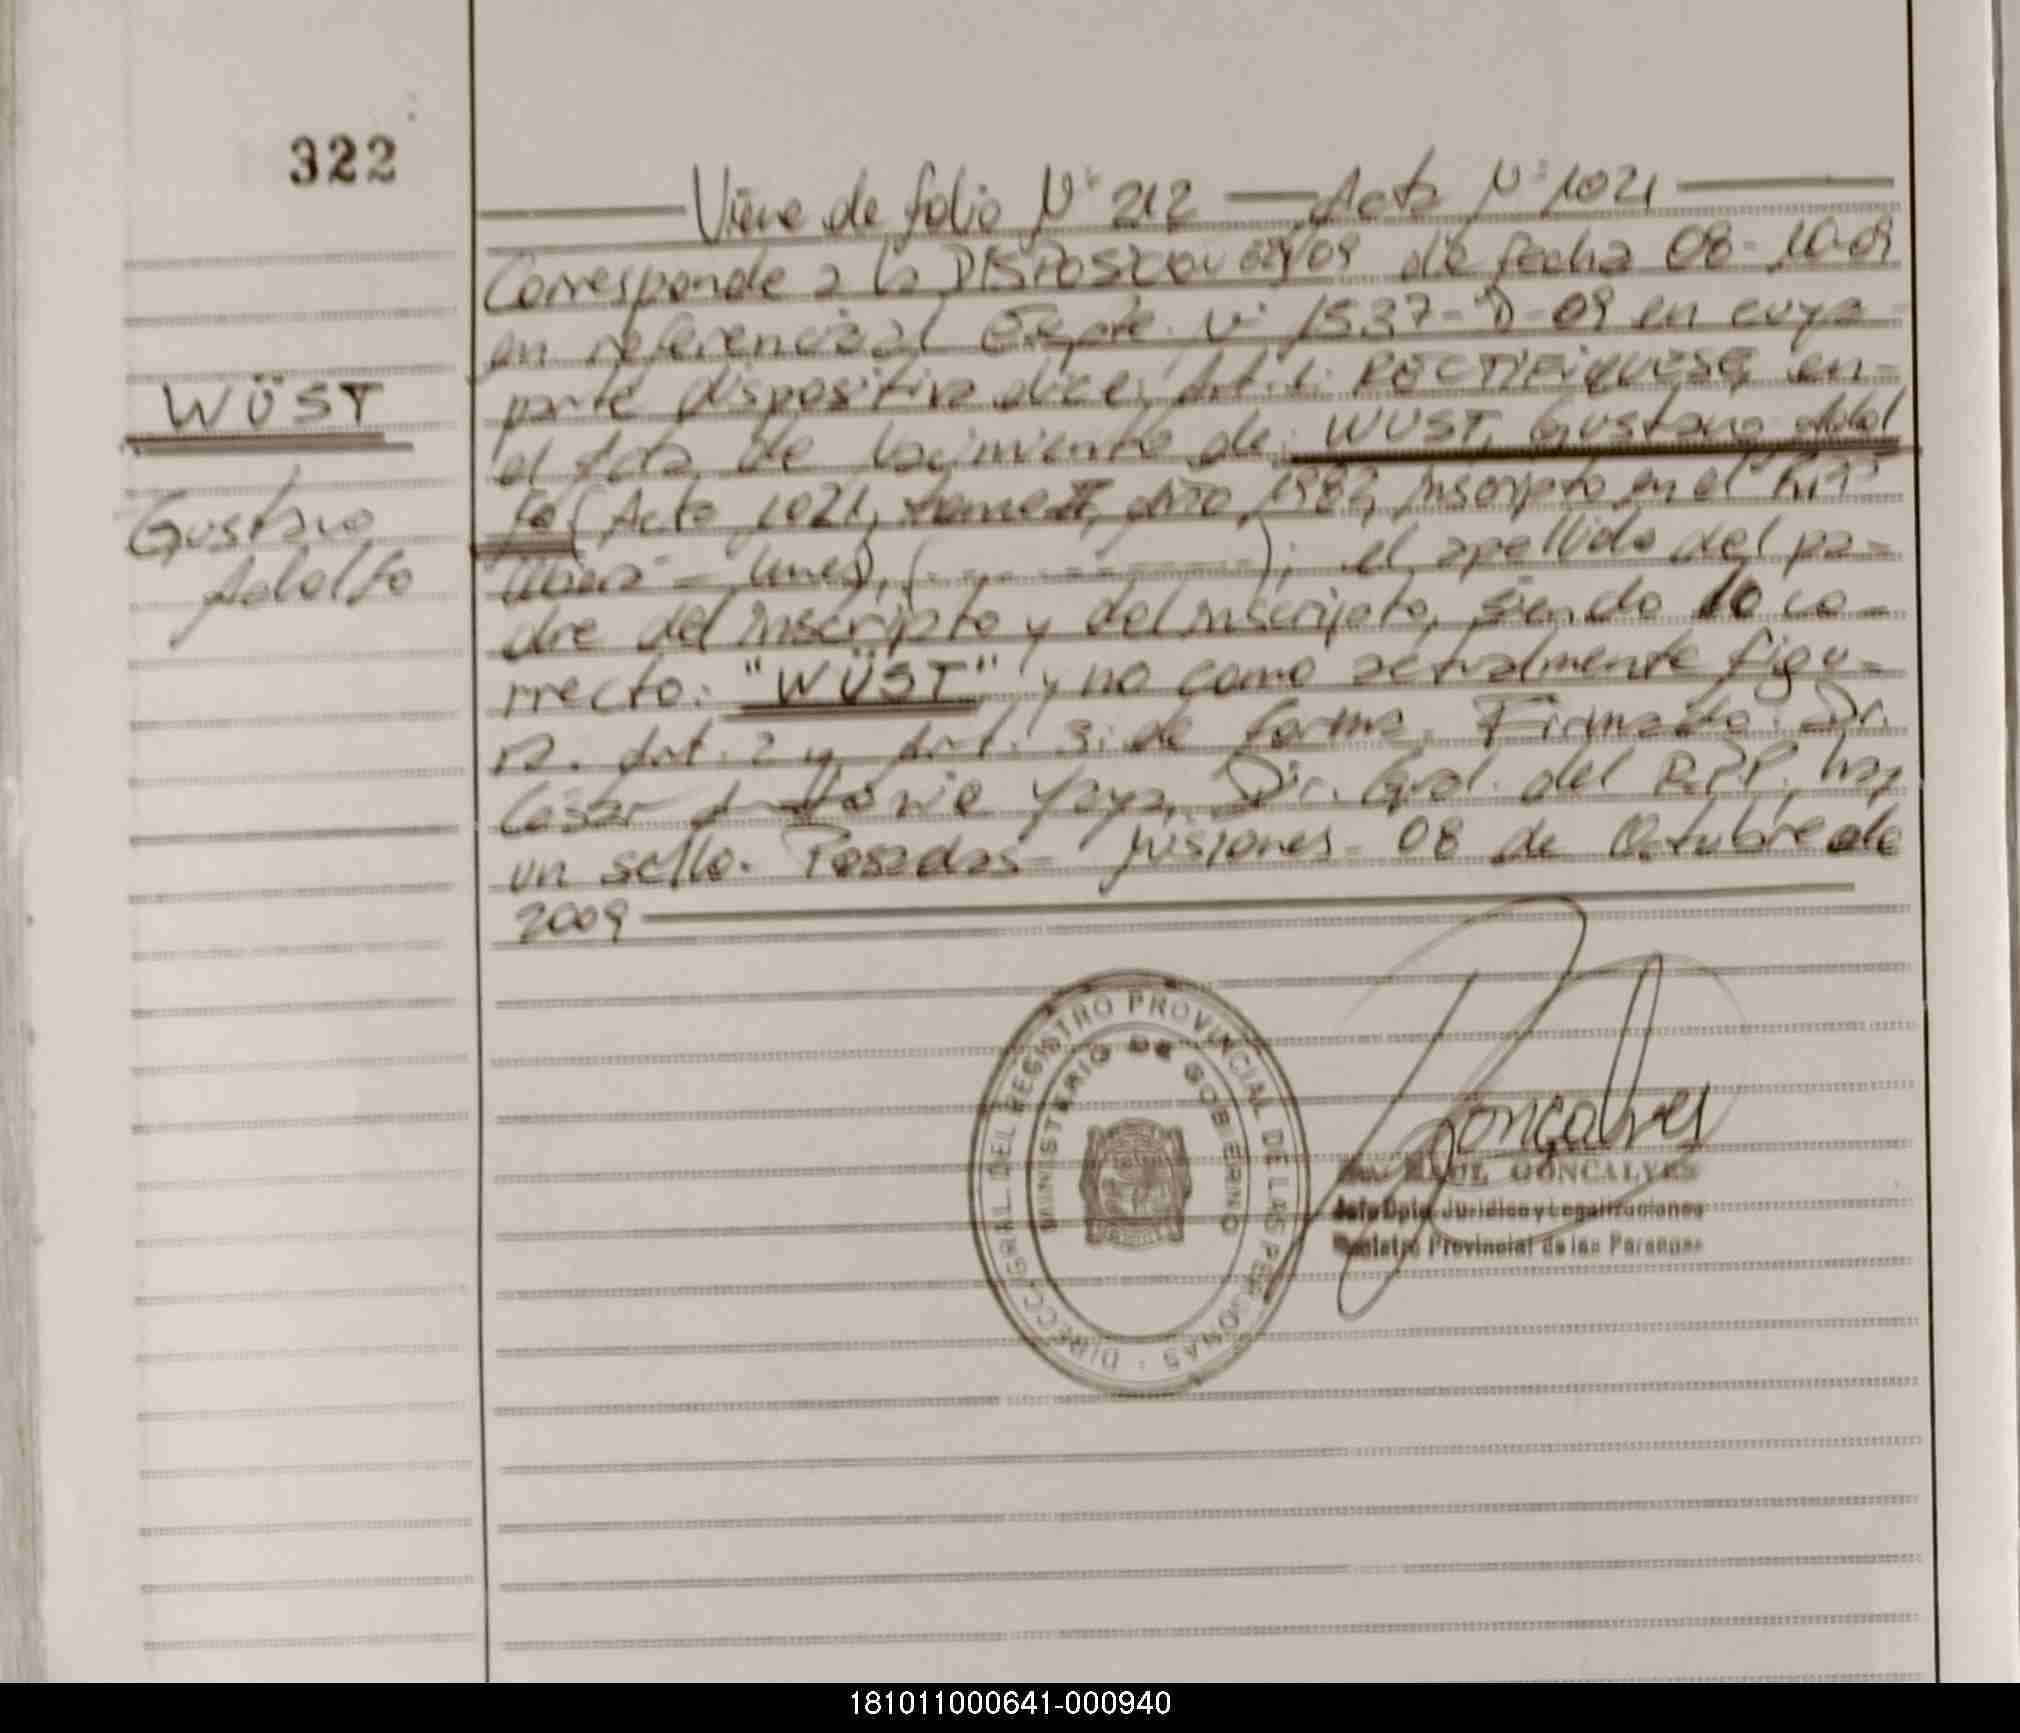 322
Viene de folio Nº 212 — Acta Nº 1021
Corresponde a la DISPOSICION /09 de fecha 08-10-09
en referencia al Expte. Nº 1537-D-09 en cuya
parte dispositiva dice: Art. 1: RECTIFIQUESE en-
el Acta de Nacimiento de: WUST, Gustavo Adol
fo (Acta 1021, tomo II, año 1982, inscripto en el
el apellido del pa-
dre del inscripto y del inscripto, siendo lo co-
rrecto: "WÜST" y no como actualmente figu-
ra. Art. 2 y Art. 3: de forma. Firmado: Dr.
Cesar Antonio Yaya, Dir. Gral. del R.P.P. hay
un sello. Posadas - Misiones - 08 de Octubre de
2009
WÜST
Gustavo
Adolfo
DIRECC. GRAL. DEL REGISTRO PROVINCIAL DE LAS PERSONAS
MINISTERIO DE GOBIERNO
Gonçalves
RAUL GONCALVES
Jefe Dpto. Jurídico y Legalizaciones
Registro Provincial de las Personas
181011000641-000940